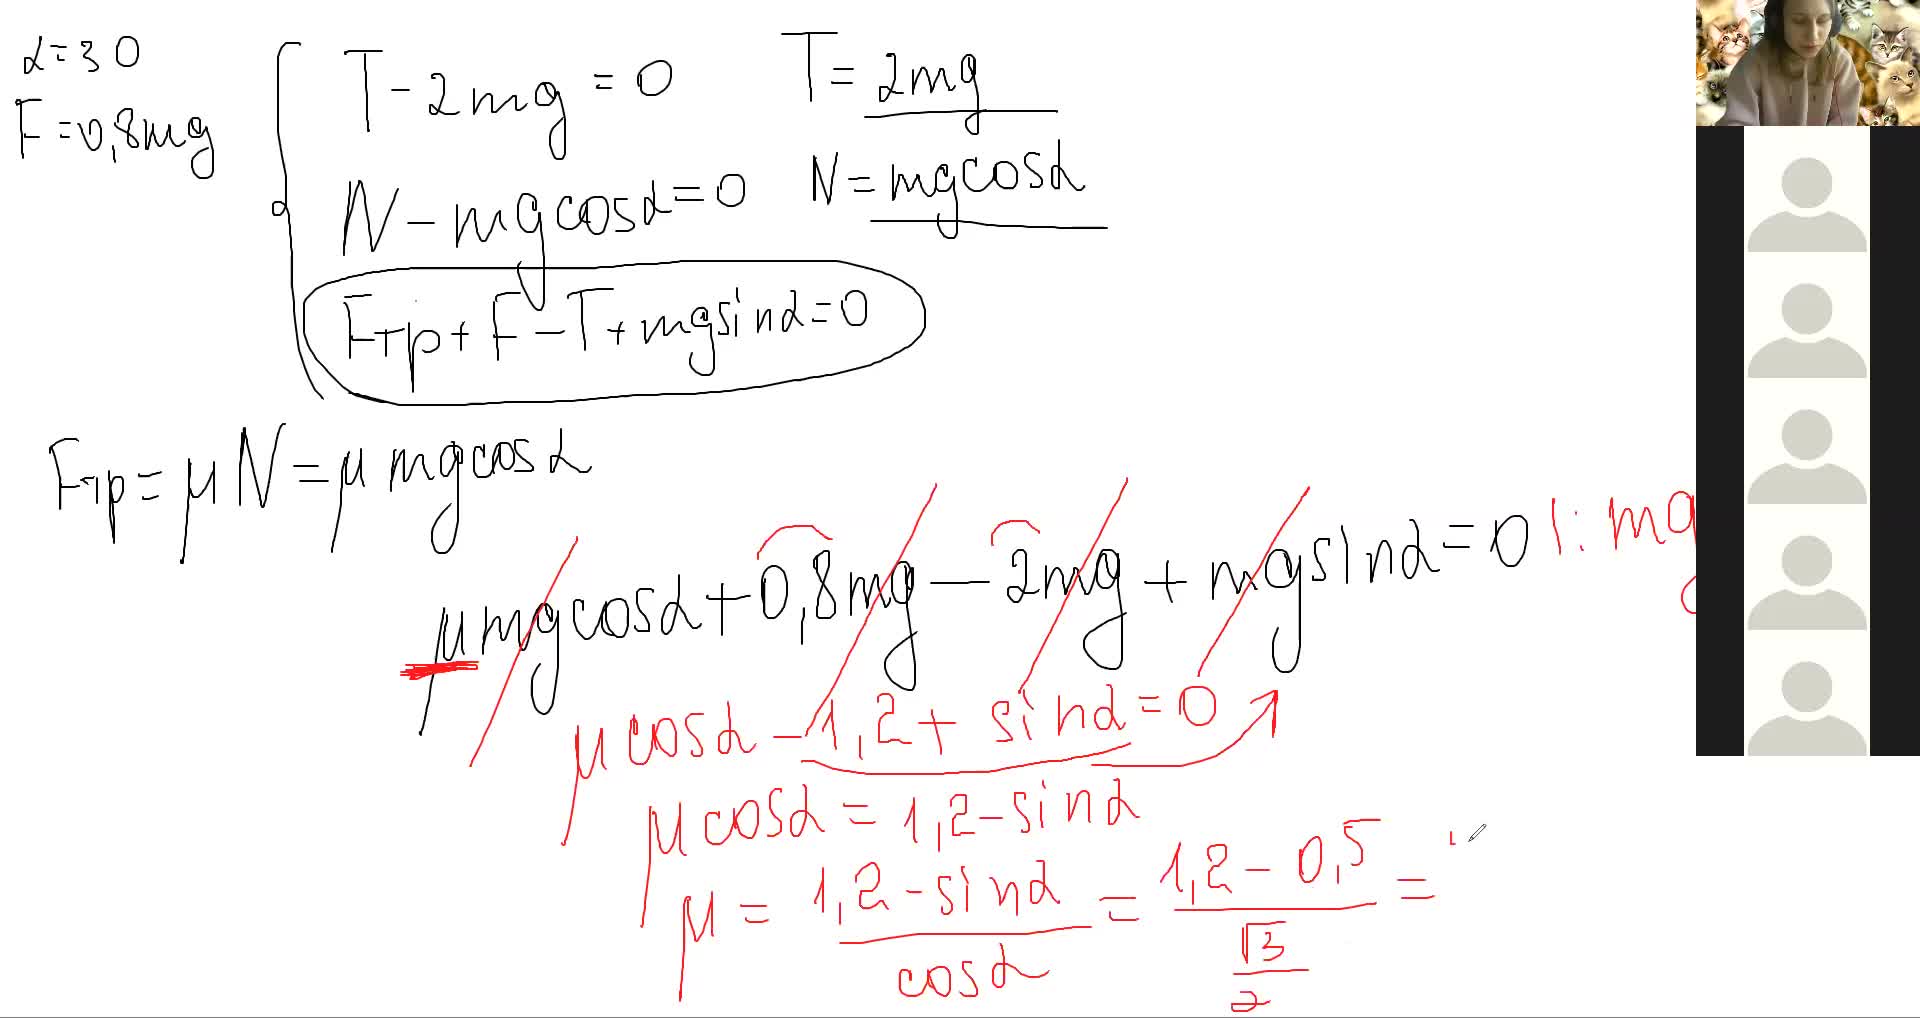 α=30
F=0,8mg
T-2mg=0
T=2mg
N-mgcosα=0
N=mgcosα
Fтр+F-T+mgsinα=0
Fтр=μN=μmgcosα
μmgcosα+0,8mg-2mg+mgsinα=0 |:mg
μcosα-1,2+sinα=0
μcosα=1,2-sinα
μ=\frac{1,2-sinα}{cosα}=\frac{1,2-0,5}{\frac{√3}{2}}=